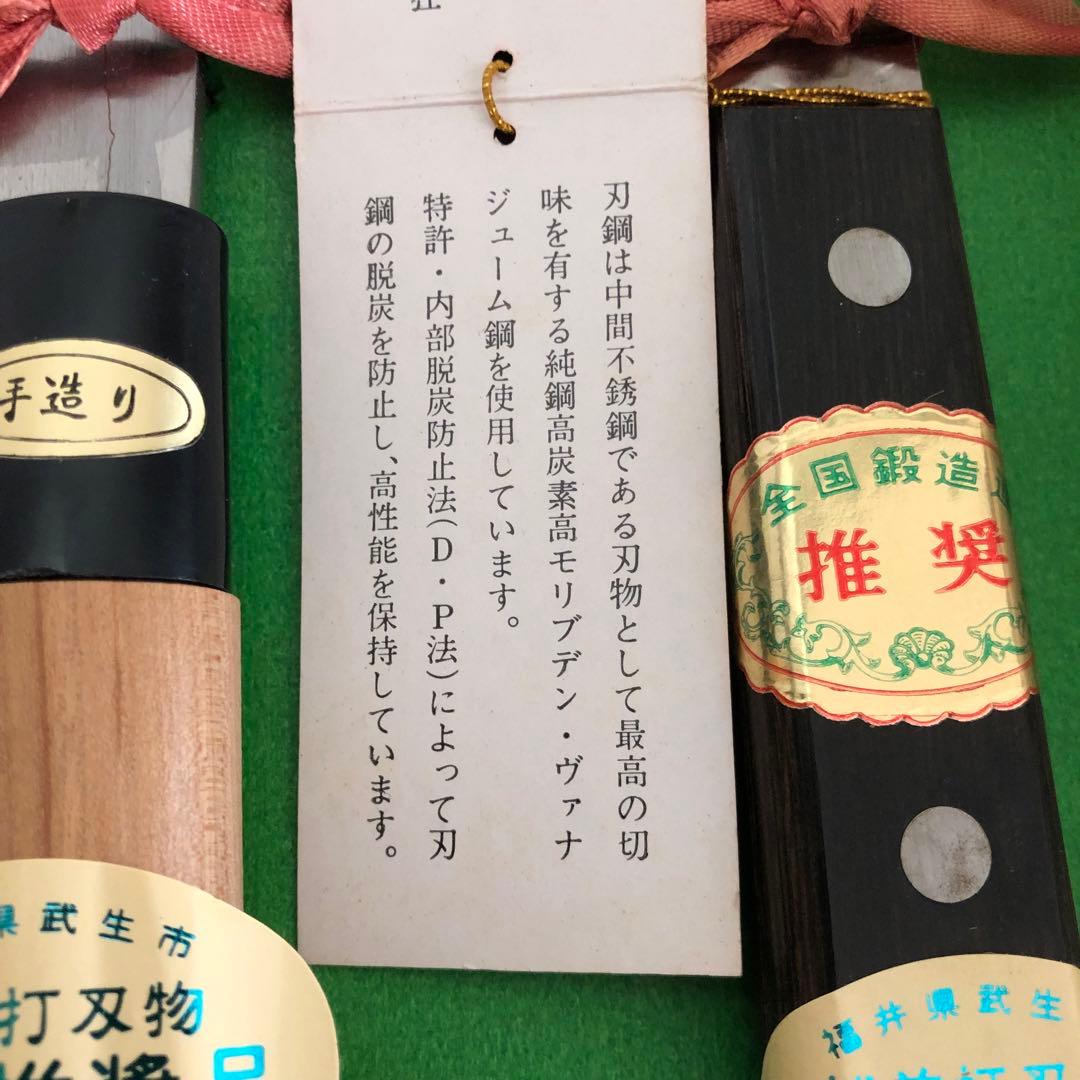 刃鋼は中間不銹鋼である刃物として最高の切
味を有する純鋼高炭素高モリブデン・ヴァナ
ジューム鋼を使用しています。
特許・内部脱炭防止法(D・P法)によって刃
鋼の脱炭を防止し、高性能を保持しています。
手造り
県武生市
打刃物
全国鍛造
推奨
福井県武生